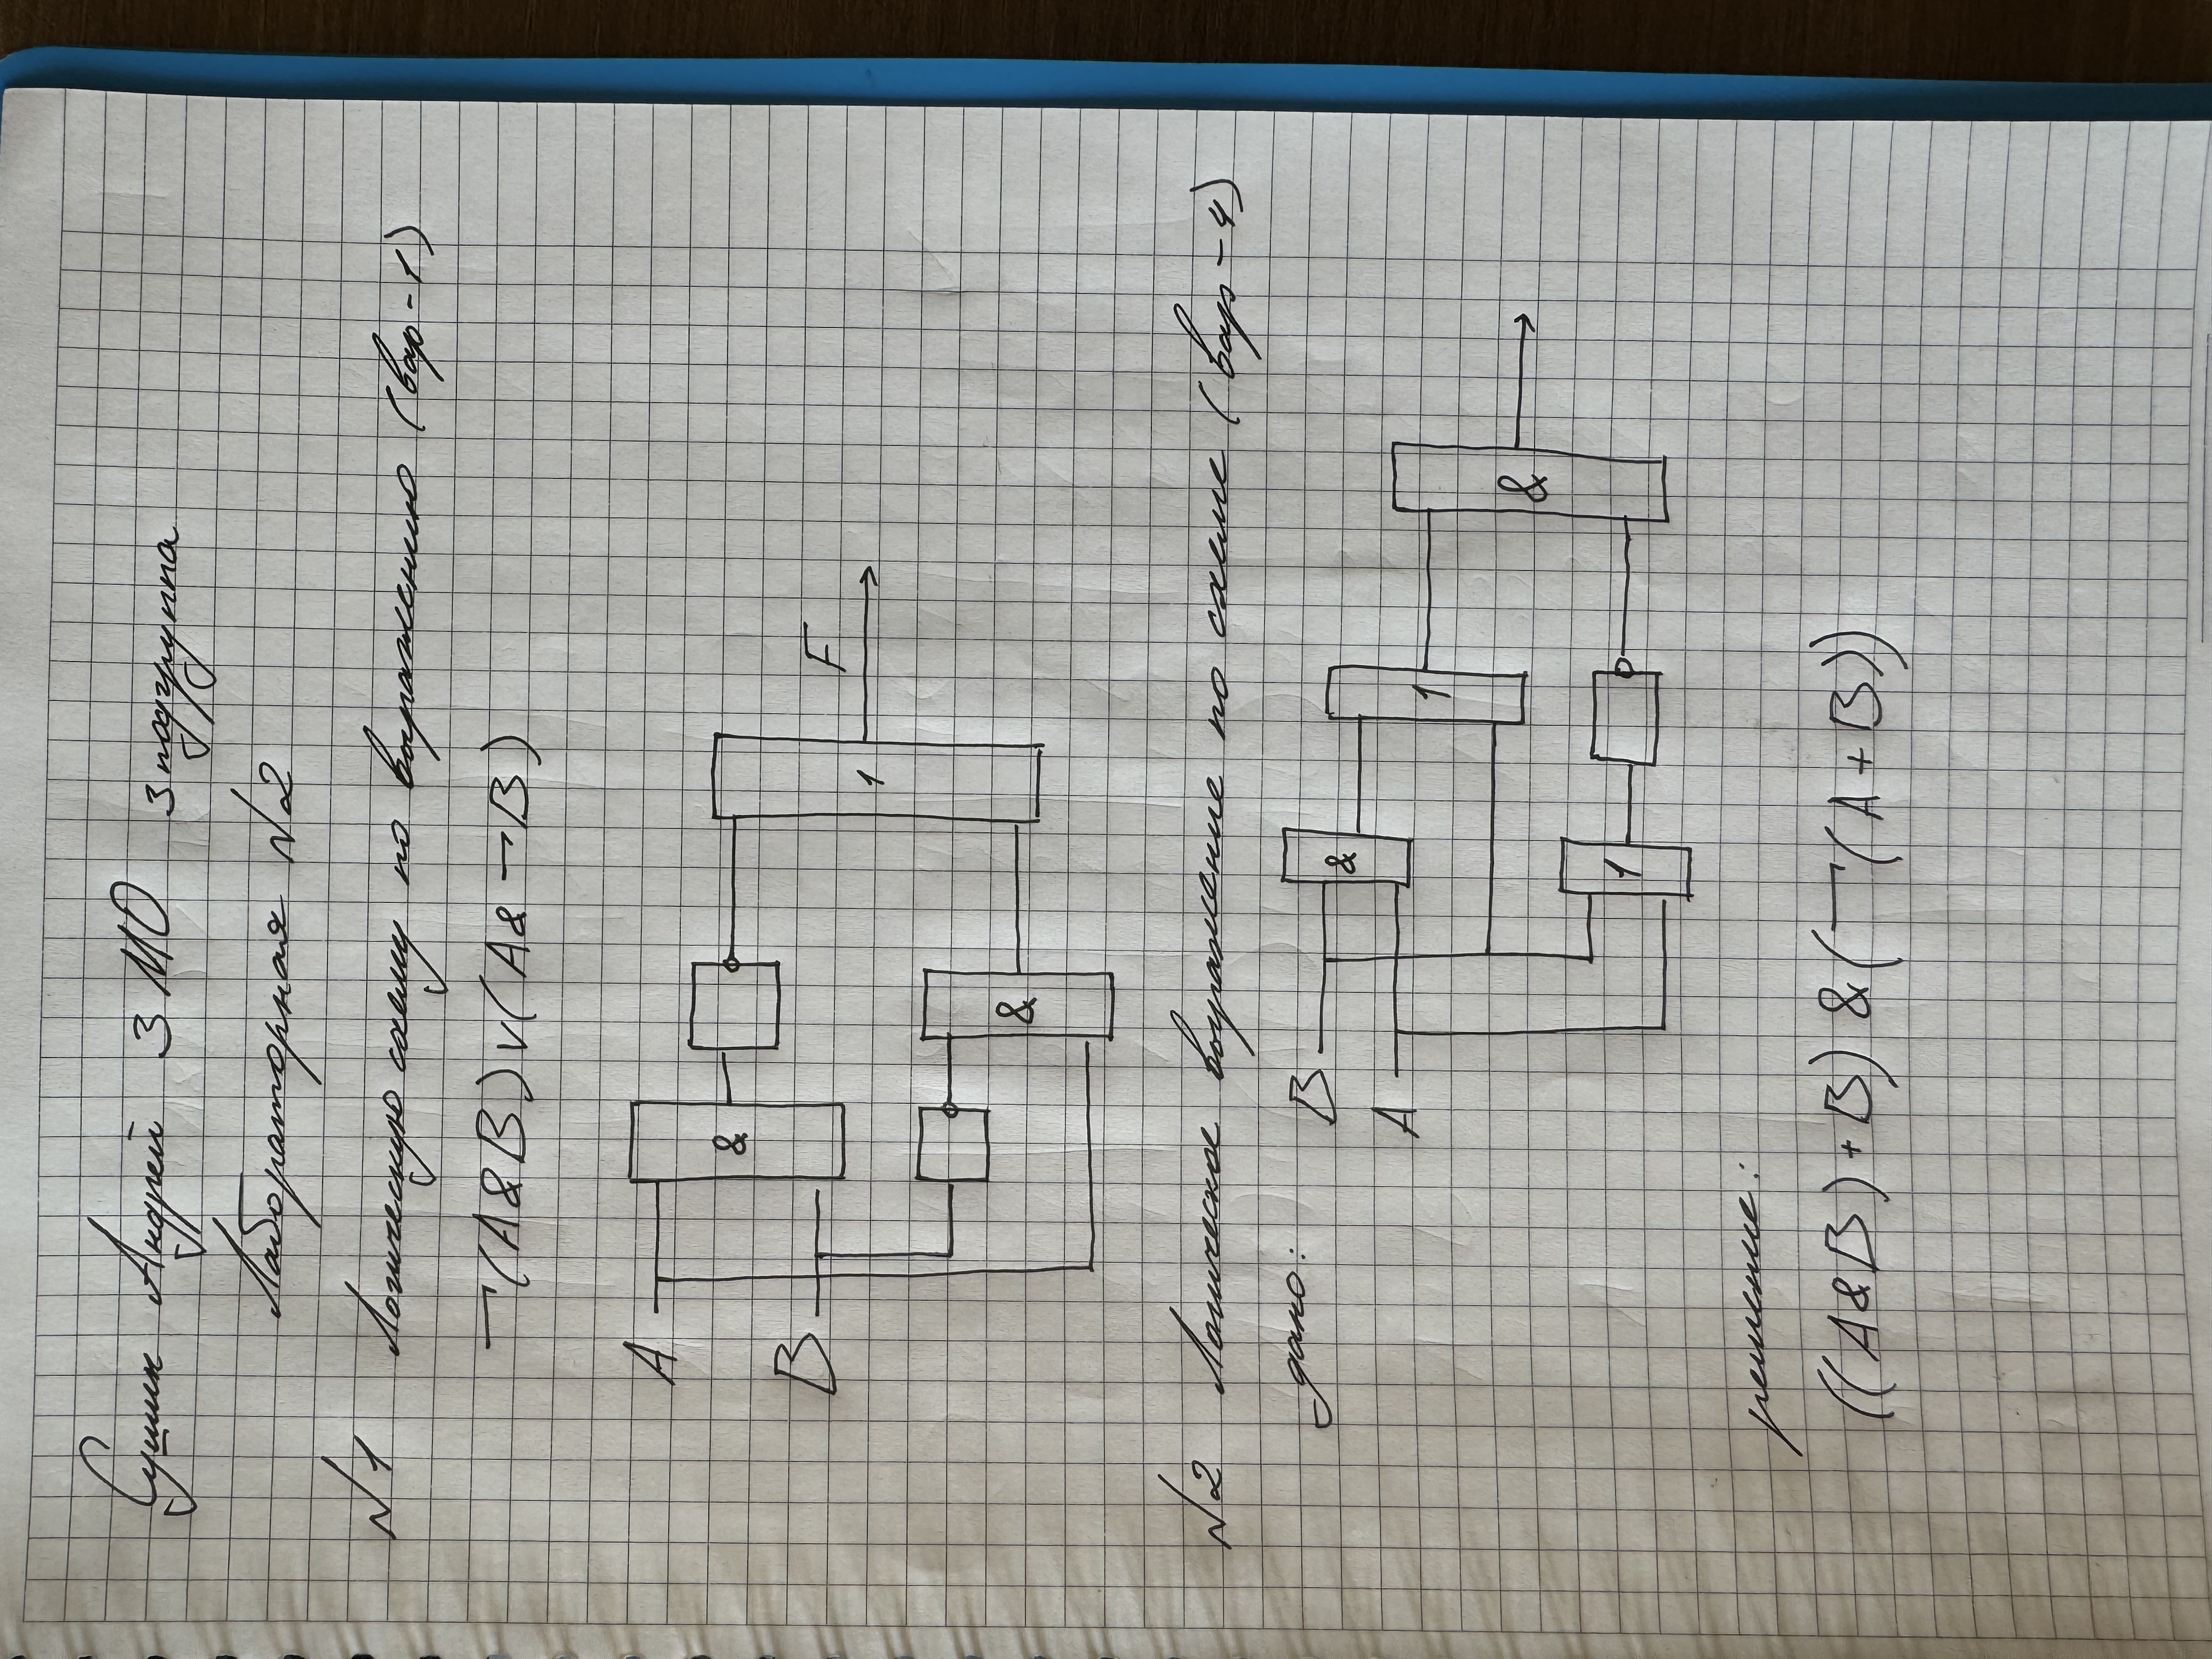 Сушик Андрей 3 МО 3 подгруппа
Лабораторная №2
№1 Логическую схему по выражению (вар-1)
¬(A&B)∨(A&¬B)
A
&
B
F
1
&
№2 Логическое выражение по схеме (вар-4)
дано:
B
&
A
1
&
1
решение:
((A&B)+B)&(¬(A+B))